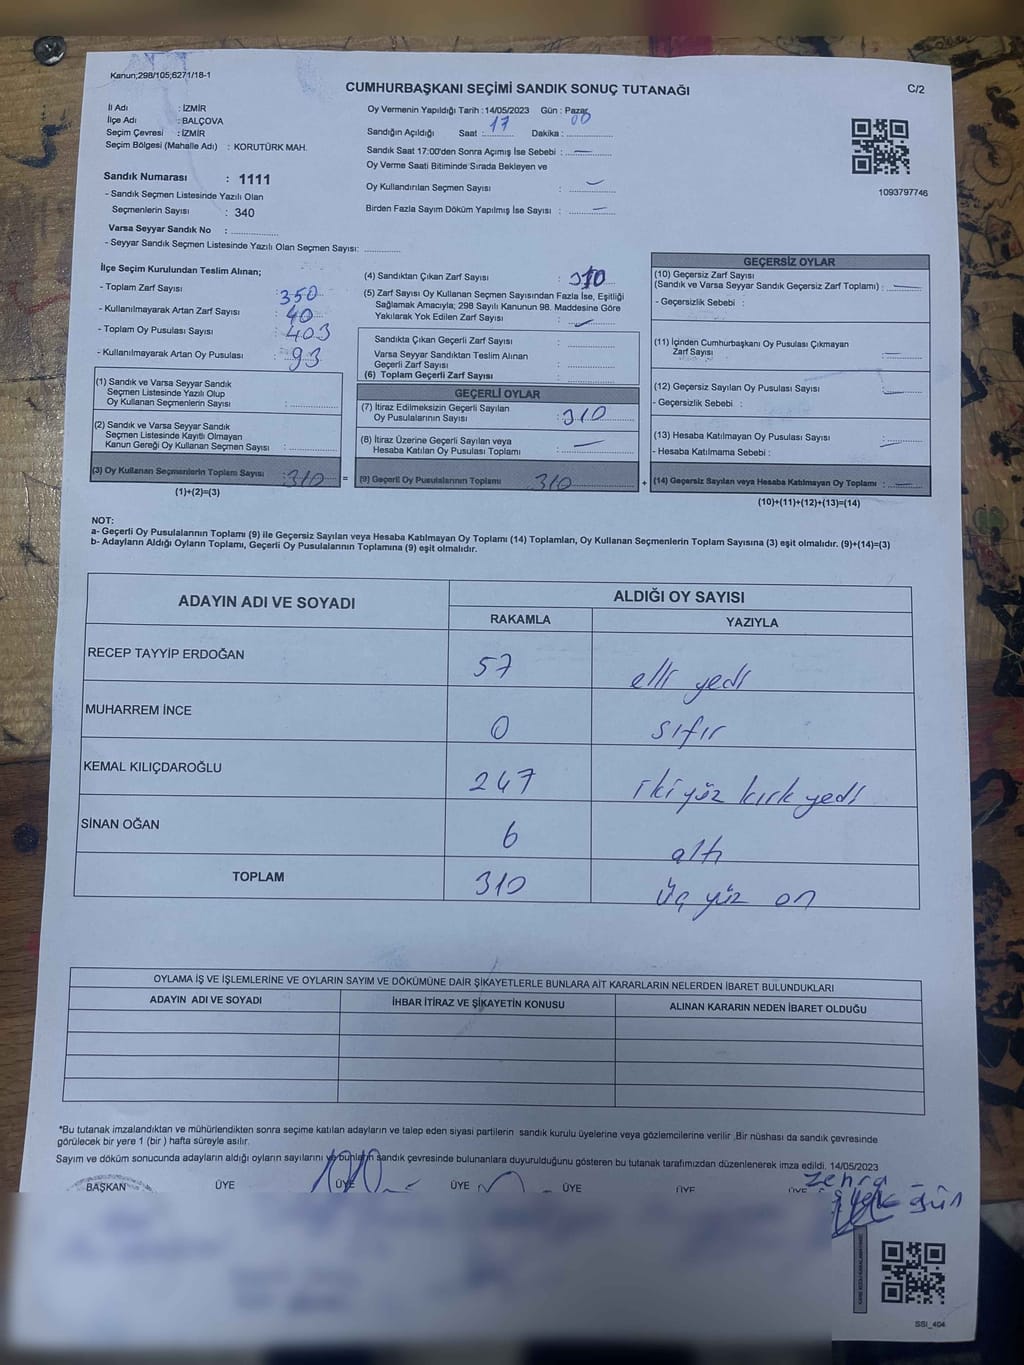 Kanun;298/105;6271/18-1
CUMHURBAŞKANI SEÇİMİ SANDIK SONUÇ TUTANAĞI
C/2
İl Adı : İZMİR
İlçe Adı : BALÇOVA
Seçim Çevresi : İZMİR
Seçim Bölgesi (Mahalle Adı) : KORUTÜRK MAH.
Sandık Numarası : 1111
- Sandık Seçmen Listesinde Yazılı Olan
Seçmenlerin Sayısı : 340
Varsa Seyyar Sandık No :
- Seyyar Sandık Seçmen Listesinde Yazılı Olan Seçmen Sayısı:
Oy Vermenin Yapıldığı Tarih :14/05/2023 Gün : Pazar
Sandığın Açıldığı Saat : 17 Dakika : 00
Sandık Saat 17:00'den Sonra Açımış İse Sebebi : —
Oy Verme Saati Bitiminde Sırada Bekleyen ve
Oy Kullandırılan Seçmen Sayısı : —
Birden Fazla Sayım Döküm Yapılmış İse Sayısı : —
1093797746
İlçe Seçim Kurulundan Teslim Alınan;
- Toplam Zarf Sayısı : 350
- Kullanılmayarak Artan Zarf Sayısı : 40
- Toplam Oy Pusulası Sayısı : 403
- Kullanılmayarak Artan Oy Pusulası : 93
(1) Sandık ve Varsa Seyyar Sandık
Seçmen Listesinde Yazılı Olup
Oy Kullanan Seçmenlerin Sayısı :
(2) Sandık ve Varsa Seyyar Sandık
Seçmen Listesinde Kayıtlı Olmayan
Kanun Gereği Oy Kullanan Seçmen Sayısı :
(3) Oy Kullanan Seçmenlerin Toplam Sayısı : 310 =
(1)+(2)=(3)
(4) Sandıktan Çıkan Zarf Sayısı : 310
(5) Zarf Sayısı Oy Kullanan Seçmen Sayısından Fazla İse, Eşitliği
Sağlamak Amacıyla; 298 Sayılı Kanunun 98. Maddesine Göre
Yakılarak Yok Edilen Zarf Sayısı : —
Sandıkta Çıkan Geçerli Zarf Sayısı :
Varsa Seyyar Sandıktan Teslim Alınan
Geçerli Zarf Sayısı :
(6) Toplam Geçerli Zarf Sayısı :
GEÇERLİ OYLAR
(7) İtiraz Edilmeksizin Geçerli Sayılan
Oy Pusulalarının Sayısı : 310
(8) İtiraz Üzerine Geçerli Sayılan veya
Hesaba Katılan Oy Pusulası Toplamı : —
(9) Geçerli Oy Pusulalarının Toplamı 310 +
GEÇERSİZ OYLAR
(10) Geçersiz Zarf Sayısı
(Sandık ve Varsa Seyyar Sandık Geçersiz Zarf Toplamı) : —
- Geçersizlik Sebebi :
(11) İçinden Cumhurbaşkanı Oy Pusulası Çıkmayan
Zarf Sayısı : —
(12) Geçersiz Sayılan Oy Pusulası Sayısı : —
- Geçersizlik Sebebi :
(13) Hesaba Katılmayan Oy Pusulası Sayısı : —
- Hesaba Katılmama Sebebi :
(14) Geçersiz Sayılan veya Hesaba Katılmayan Oy Toplamı : —
(10)+(11)+(12)+(13)=(14)
NOT:
a- Geçerli Oy Pusulalarının Toplamı (9) ile Geçersiz Sayılan veya Hesaba Katılmayan Oy Toplamı (14) Toplamları, Oy Kullanan Seçmenlerin Toplam Sayısına (3) eşit olmalıdır. (9)+(14)=(3)
b- Adayların Aldığı Oyların Toplamı, Geçerli Oy Pusulalarının Toplamına (9) eşit olmalıdır.
ADAYIN ADI VE SOYADI ALDIĞI OY SAYISI
RAKAMLA YAZIYLA
RECEP TAYYİP ERDOĞAN 57 elli yedi
MUHARREM İNCE 0 sıfır
KEMAL KILIÇDAROĞLU 247 iki yüz kırk yedi
SİNAN OĞAN 6 altı
TOPLAM 310 üç yüz on
OYLAMA İŞ VE İŞLEMLERİNE VE OYLARIN SAYIM VE DÖKÜMÜNE DAİR ŞİKAYETLERLE BUNLARA AİT KARARLARIN NELERDEN İBARET BULUNDUKLARI
ADAYIN ADI VE SOYADI İHBAR İTİRAZ VE ŞİKAYETİN KONUSU ALINAN KARARIN NEDEN İBARET OLDUĞU
*Bu tutanak imzalandıktan ve mühürlendikten sonra seçime katılan adayların ve talep eden siyasi partilerin sandık kurulu üyelerine veya gözlemcilerine verilir ,Bir nüshası da sandık çevresinde
görülecek bir yere 1 (bir ) hafta süreyle asılır.
Sayım ve döküm sonucunda adayların aldığı oyların sayılarını ve bunların sandık çevresinde bulunanlara duyurulduğunu gösteren bu tutanak tarafımızdan düzenlenerek imza edildi. 14/05/2023
BAŞKAN ÜYE ÜYE ÜYE ÜYE ÜYE ÜYE
Zehra
gün
SSI_404